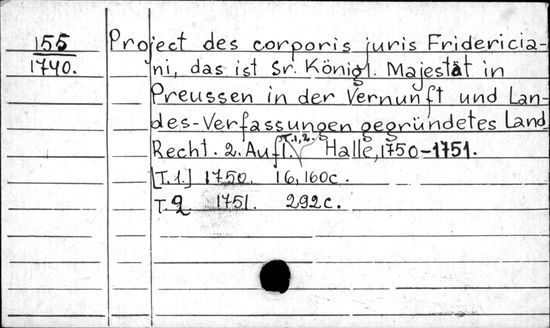 155
1740.
Project des corporis juris Fridericia-
ni, das ist Sr. Königl. Majestät in
Preussen in der Vernunft und Lan-
des-Verfassungen gegründetes Land
Recht. 2. Aufl. T.1,2. Halle, 1750-1751.
[T.1.] 1750. 16, 160c.
T.2 1751. 292c.